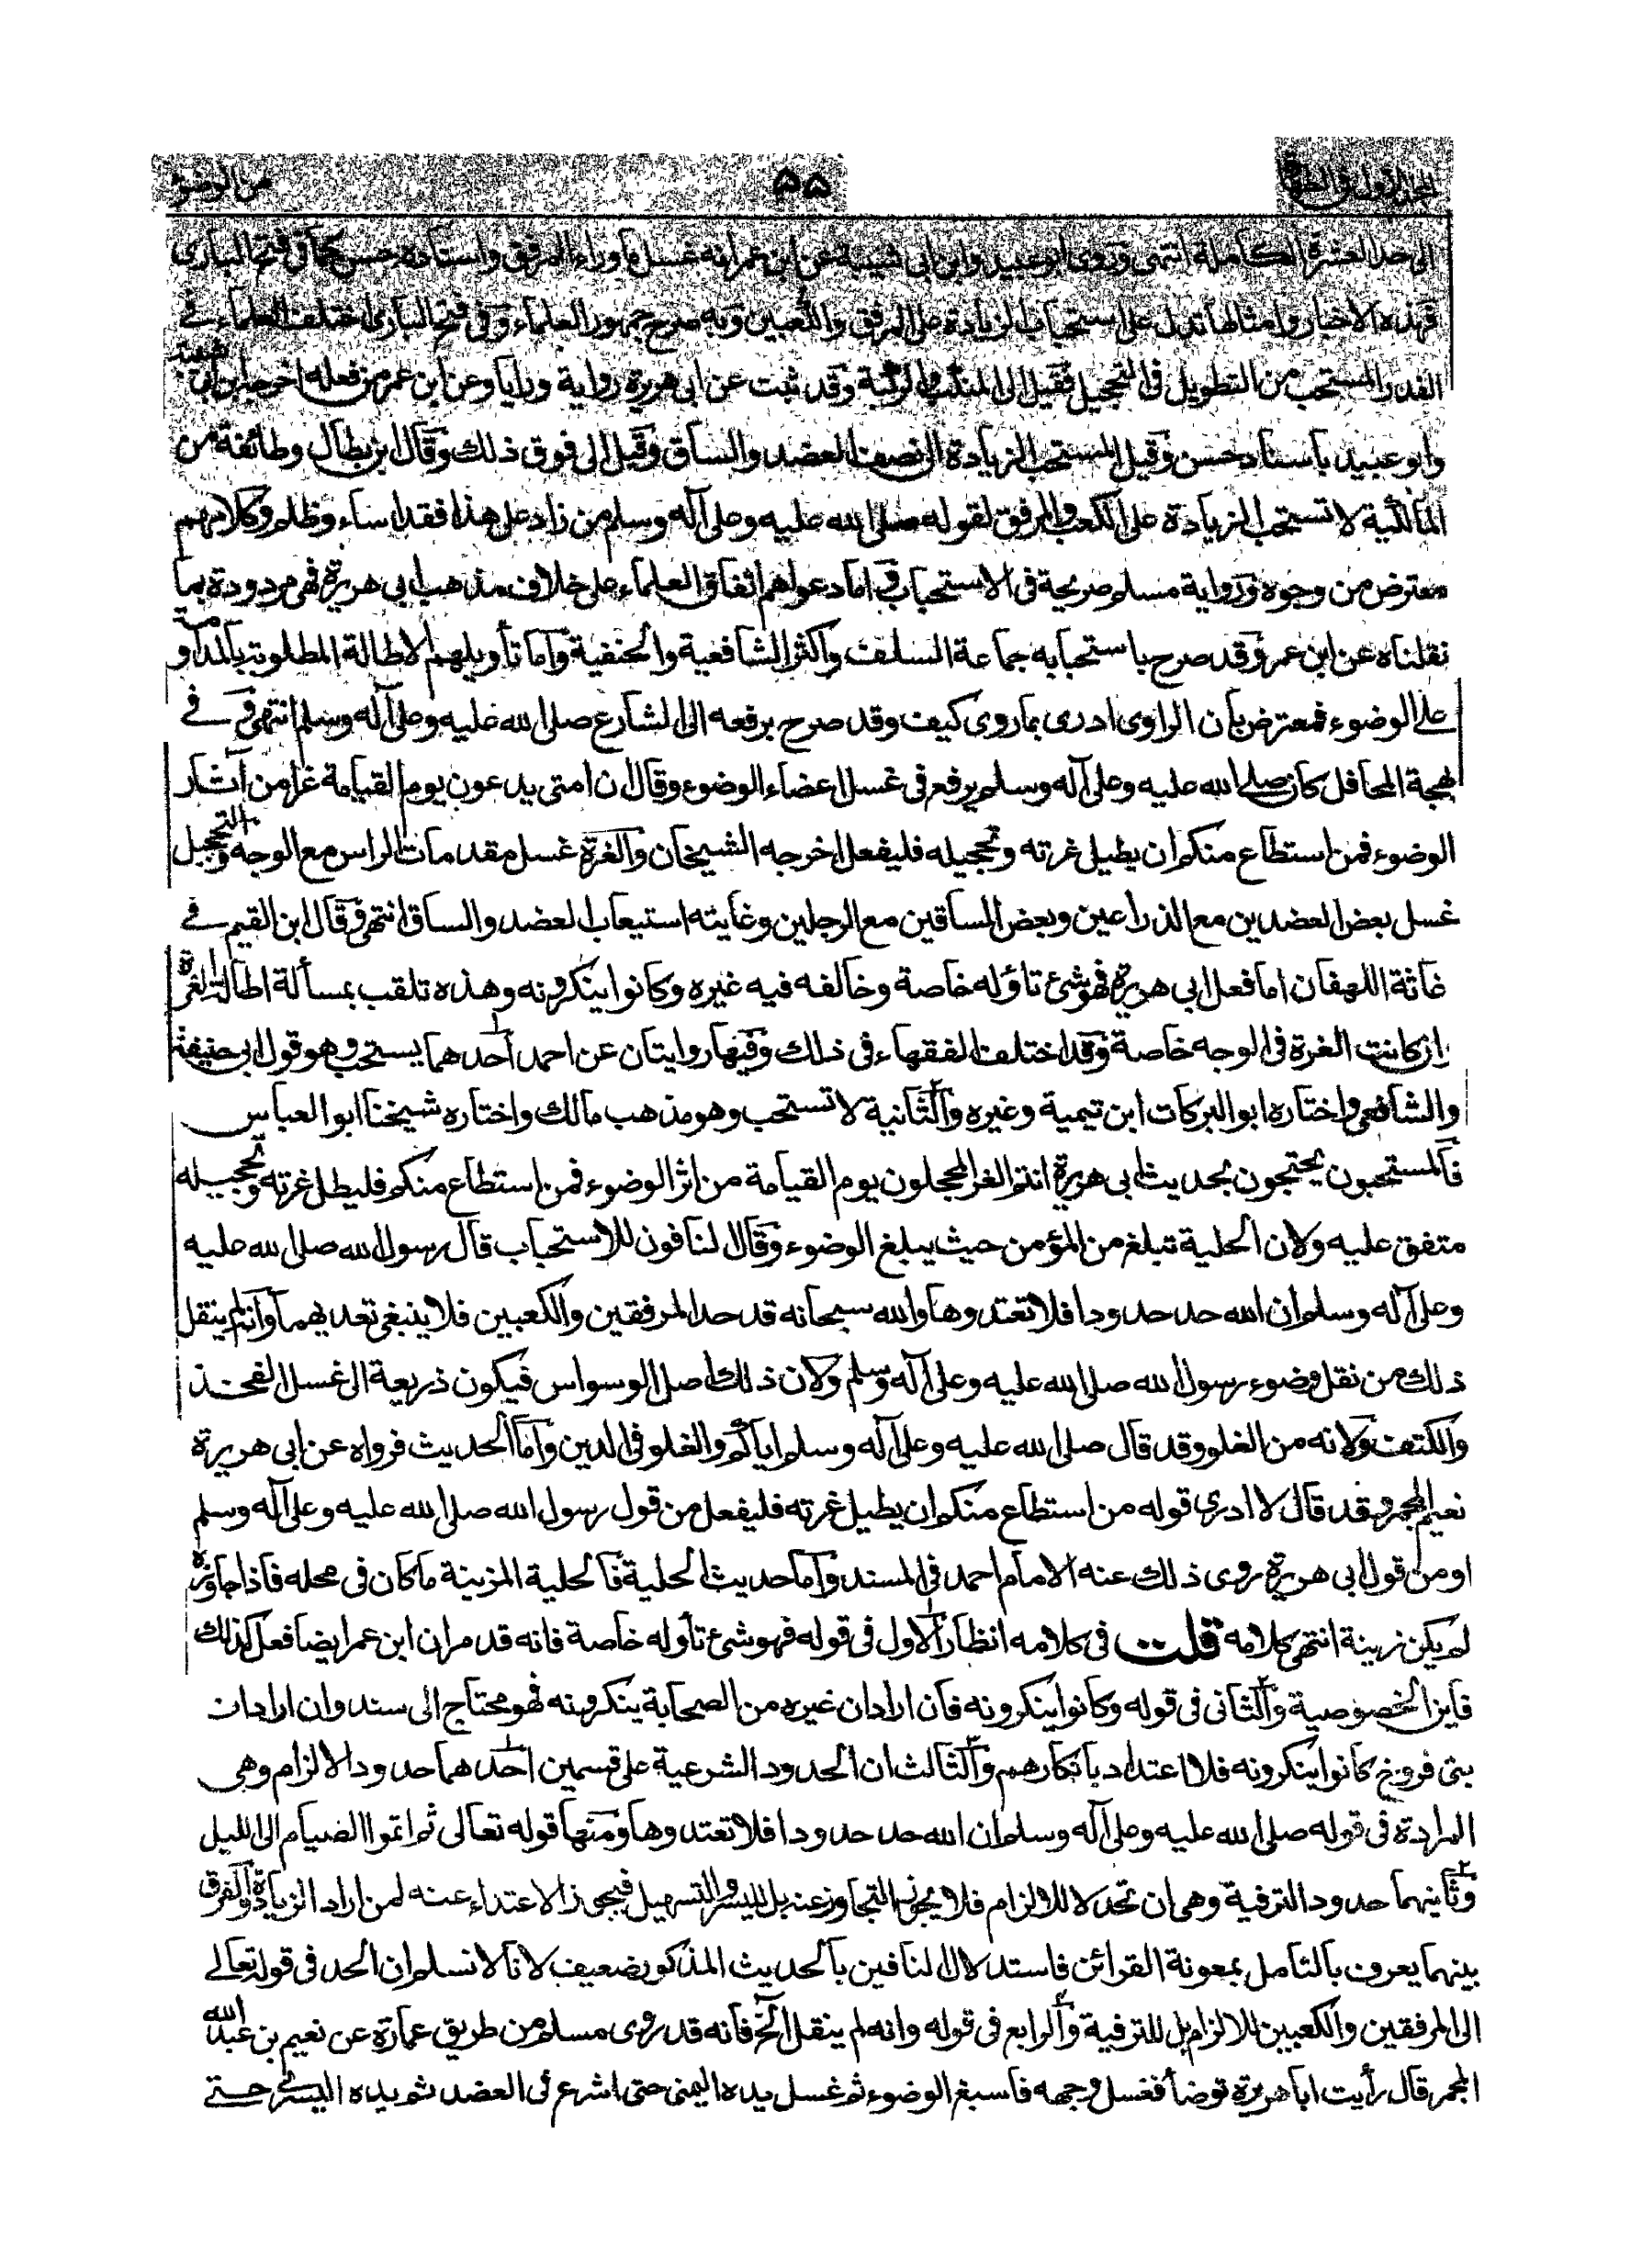 من الوضوء ۵۵
الى حد العشرة الكاملة انتهى وروى ابو عبيد وابن ابي شيبة عن ابن عمر انه غسل ما وراء المرفق واسناده حسن كما في فتح الباري
فهذه الاخبار وامثالها تدل على استحباب الزيادة على المرفق والكعبين وبه صرح جمهور العلماء وفي فتح الباري اختلف العلماء في
القدر المستحب من التطويل في التحجيل فقيل الى المنكب والركبة وقد ثبت عن ابي هريرة رواية ورايا وعن ابن عمر من فعله اخرجه ابن ابي شيبة
وابو عبيد باسناد حسن وقيل المستحب الزيادة الى نصف العضد والساق وقيل الى فوق ذلك وقال ابن بطال وطائفة من
المالكية لا تستحب الزيادة على الكعب والمرفق لقوله صلى الله عليه وعلى آله وسلم من زاد على هذا فقد اساء وظلم وكلامهم
معترض من وجوه ورواية مسلم صريحة في الاستحباب واما دعواهم اتفاق العلماء على خلاف مذهب ابي هريرة فهي مردودة بما
نقلناه عن ابن عمر وقد صرح باستحبابه جماعة السلف واكثر الشافعية والحنفية واما تأويلهم الاطالة المطلوبة بالمداومة
على الوضوء فمعترض بان الراوى ادرى بما روى كيف وقد صرح برفعه الى الشارع صلى الله عليه وعلى آله وسلم انتهى وفي
بهجة المحافل كان صلى الله عليه وعلى آله وسلم يرفع في غسل اعضاء الوضوء وقال ان امتى يدعون يوم القيامة غرا من آثار
الوضوء فمن استطاع منكم ان يطيل غرته وتحجيله فليفعل اخرجه الشيخان والغرة غسل مقدمات الراس مع الوجه والتحجيل
غسل بعض العضدين مع الذراعين وبعض الساقين مع الرجلين وغايته استيعاب العضد والساق انتهى وقال ابن القيم في
غاثة اللهفان اما فعل ابي هريرة فهو شئ تاوله خاصة وخالفه فيه غيره وكانوا ينكرونه وهذه تلقب بمسألة اطالة الغرة
ان كانت الغرة في الوجه خاصة وقد اختلف الفقهاء في ذلك وفيها روايتان عن احمد أحدهما يستحب وهو قول ابي حنيفة
والشافعي واختاره ابو البركات ابن تيمية وغيره والثانية لا تستحب وهو مذهب مالك واختاره شيخنا ابو العباس
فالمستحبون يحتجون بحديث ابي هريرة انتم الغر المحجلون يوم القيامة من اثر الوضوء فمن استطاع منكم فليطل غرته وتحجيله
متفق عليه ولان الحلية تبلغ من المؤمن حيث يبلغ الوضوء وقال النافون للاستحباب قال رسول الله صلى الله عليه
وعلى آله وسلم ان الله حد حدودا فلا تعتدوها والله سبحانه قد حد المرفقين والكعبين فلا ينبغى تعديهما وانه لم ينقل
ذلك من نقل وضوء رسول الله صلى الله عليه وعلى آله وسلم ولان ذلك اصل الوسواس فيكون ذريعة الى غسل الفخذ
والكتف ولانه من الغلو وقد قال صلى الله عليه وعلى آله وسلم اياكم والغلو في الدين واما الحديث فرواه عن ابي هريرة
نعيم المجمر وقد قال لا ادري قوله من استطاع منكم ان يطيل غرته فليفعل من قول رسول الله صلى الله عليه وعلى آله وسلم
او من قول ابي هريرة روى ذلك عنه الامام احمد في المسند واما حديث الحلية فالحلية المزينة ما كان في محله فاذا جاوزه
لم يكن زينة انتهى كلامه قلت في كلامه انظار الاول في قوله فهو شئ تأوله خاصة فانه قد مر ان ابن عمر ايضا فعل كذلك
فاين الخصوصية والثانى في قوله وكانوا ينكرونه فان اراد ان غيره من الصحابة ينكرونه فهو محتاج الى سند وان اراد ان
بنى فروخ كانوا ينكرونه فلا اعتداد بانكارهم والثالث ان الحدود الشرعية على قسمين احدهما حدود الالزام وهى
المرادة في قوله صلى الله عليه وعلى آله وسلم ان الله حد حدودا فلا تعتدوها ومنها قوله تعالى ثم اتموا الصيام الى الليل
وثانيهما حدود الترفية وهى ان تحد لا للالزام فلا يجوز التجاوز عنه بل لليسر والتسهيل فيجوز الاعتداء عنه لمن اراد الزيادة والفرق
بينهما يعرف بالتامل بمعونة القرائن فاستدلال النافين بالحديث المذكور ضعيف لانا لا نسلم ان الحد في قوله تعالى
الى المرفقين والكعبين للالزام بل للترفية والرابع في قوله وانه لم ينقل الخ فانه قد روى مسلم من طريق عمارة عن نعيم بن عبد الله
المجمر قال رأيت ابا هريرة توضأ فغسل وجهه فاسبغ الوضوء ثم غسل يده اليمنى حتى اشرع في العضد ثم يده اليسرى حتى